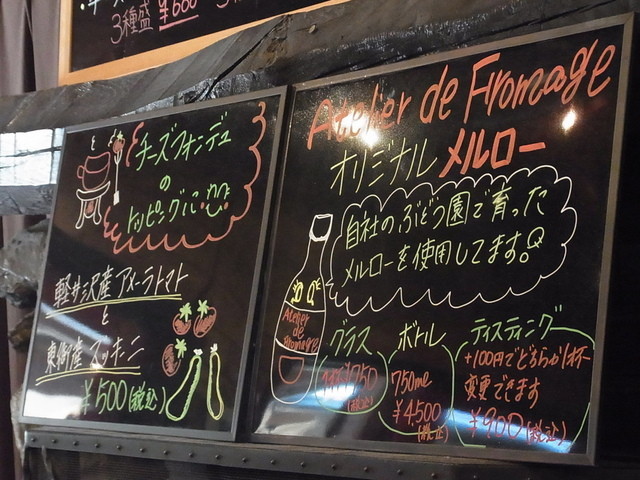 3種盛 ¥600
チーズフォンデュ
の
トッピングに
軽井沢産アメーラトマト
と
東御産ズッキーニ
¥500(税込)
Atelier de Fromage
オリジナル メルロー
自社のぶどう園で育った
メルローを使用してます。
Atelier
de
Fromage
グラス
1杯¥750
(税込)
ボトル
750ml
¥4,500
(税込)
テイスティング
+100円でどちらか1杯
変更できます
¥900(税込)